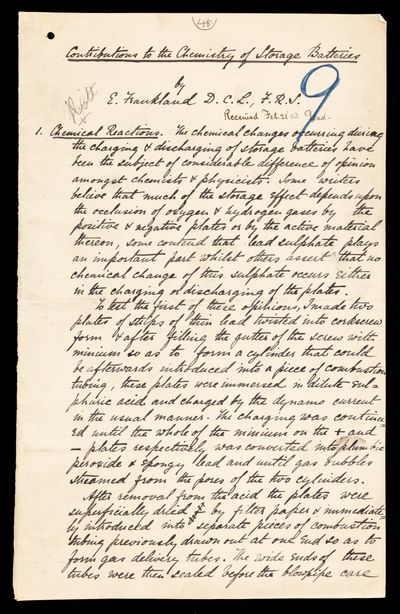 (48)
Contributions to the Chemistry of Storage Batteries
by
E. Frankland D.C.L., F.R.S.
9
Received Feb. 21 83 Read
1. Chemical Reactions. The chemical changes occurring during
the charging & discharging of storage batteries have
been the subject of considerable difference of opinion
amongst chemists & physicists. Some writers
believe that much of the storage effect depends upon
the occlusion of oxygen & hydrogen gases by the
positive & negative plates or by the active material
thereon, some contend that lead sulphate plays
an important part whilst others assert that no
chemical change of this sulphate occurs either
in the charging or discharging of the plates.
To test the first of these opinions, I made two
plates of strips of thin lead twisted into corkscrew
form & after filling the gutter of the screw with
minium so as to form a cylinder that could
be afterwards introduced into a piece of combustion
tubing, these plates were immersed in dilute sul
phuric acid and charged by the dynamo current
in the usual manner. The charging was continu
ed until the whole of the minium on the + and
– plates respectively was converted into plumbic
peroxide & spongy lead and until gas bubbles
streamed from the pores of the two cylinders.
After removal from the acid the plates were
superficially dried by filter paper & immediate
ly introduced into separate pieces of combustion
tubing previously drawn out at one end so as to
form gas delivery tubes. The wide ends of these
tubes were then sealed before the blowpipe care